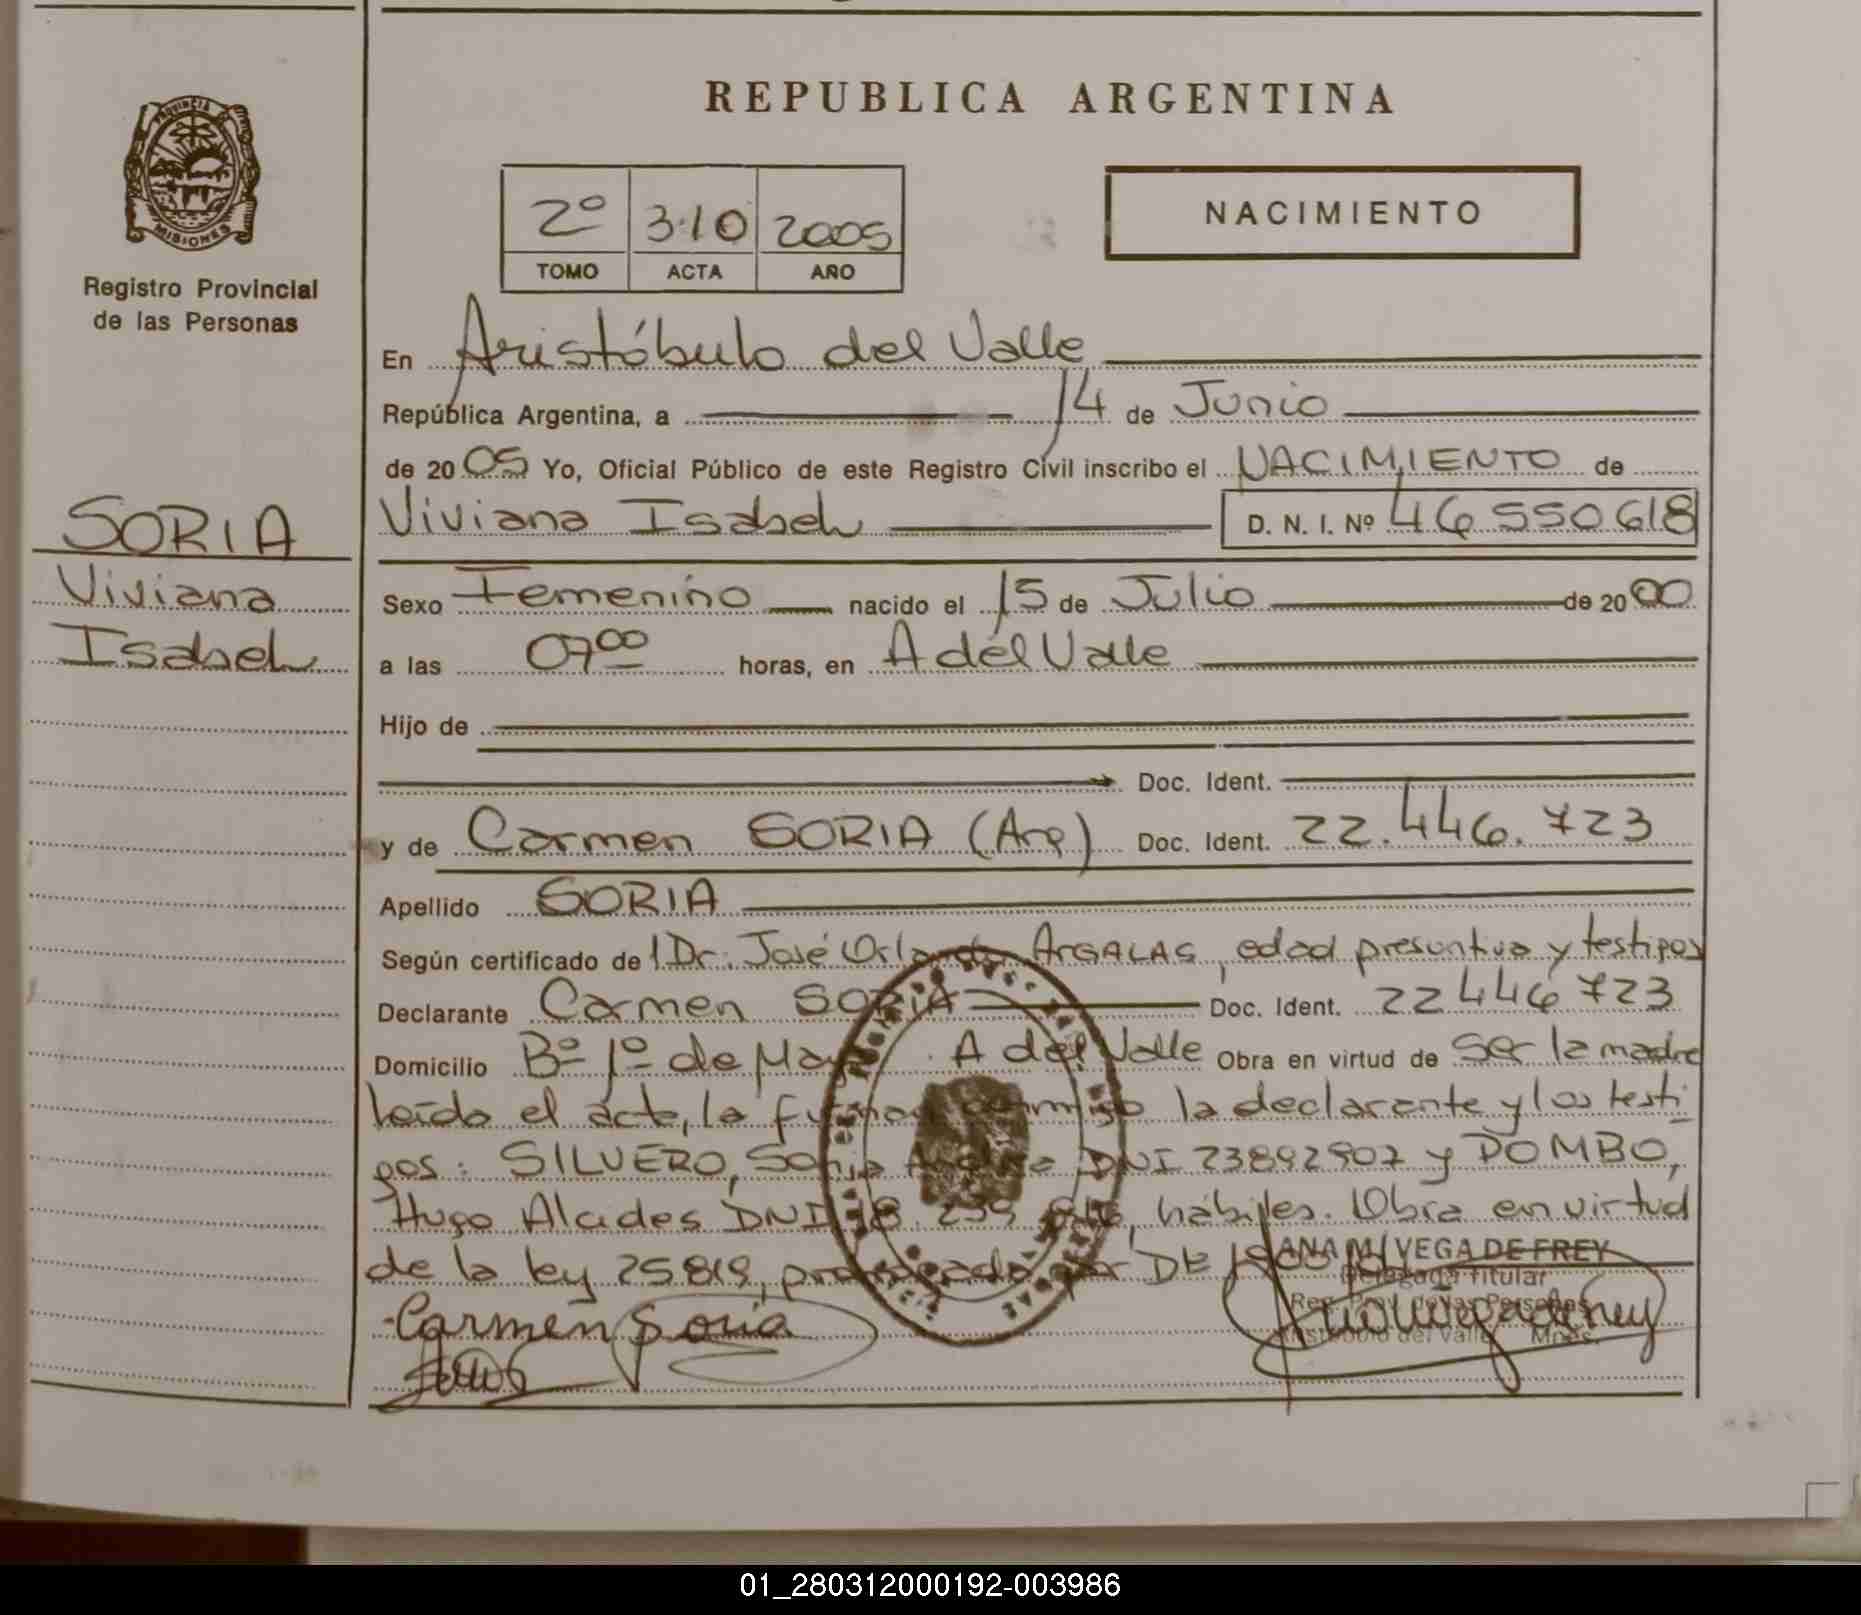 REPUBLICA ARGENTINA
PROVINCIA
MISIONES
Registro Provincial
de las Personas
2º 310 2005
TOMO ACTA AÑO
NACIMIENTO
En Aristóbulo del Valle
República Argentina, a 14 de Junio
de 2005 Yo, Oficial Público de este Registro Civil inscribo el NACIMIENTO de
SORIA
Viviana
Isabel
Viviana Isabel D. N. I. Nº 46 550 618
Sexo Femenino nacido el 15 de Julio de 2000
a las 07 00 horas, en A del Valle
Hijo de
Doc. Ident.
y de Carmen SORIA (Arg) Doc. Ident. 22.446.723
Apellido SORIA
Según certificado de l Dr. José Orlando ARGALAS, edad presuntiva y testigos
Declarante Carmen SORIA Doc. Ident. 22 446 723
Domicilio Bº 1º de Mayo. A del Valle Obra en virtud de ser la madre
leído el acta, la firman conmigo la declarante y los testi
gos: SILVERO, Sonia DNI 23892907 y DOMBO,
Hugo Alcides DNI 18. 239, hábiles. Obra en virtud
de la ley 25819, prorrogada por DE
ANA M. VEGA DE FREY
Delegada Titular
Reg. Prov. de las Personas
Aristóbulo del Valle Mnes.
Carmen Soria
01_280312000192-003986